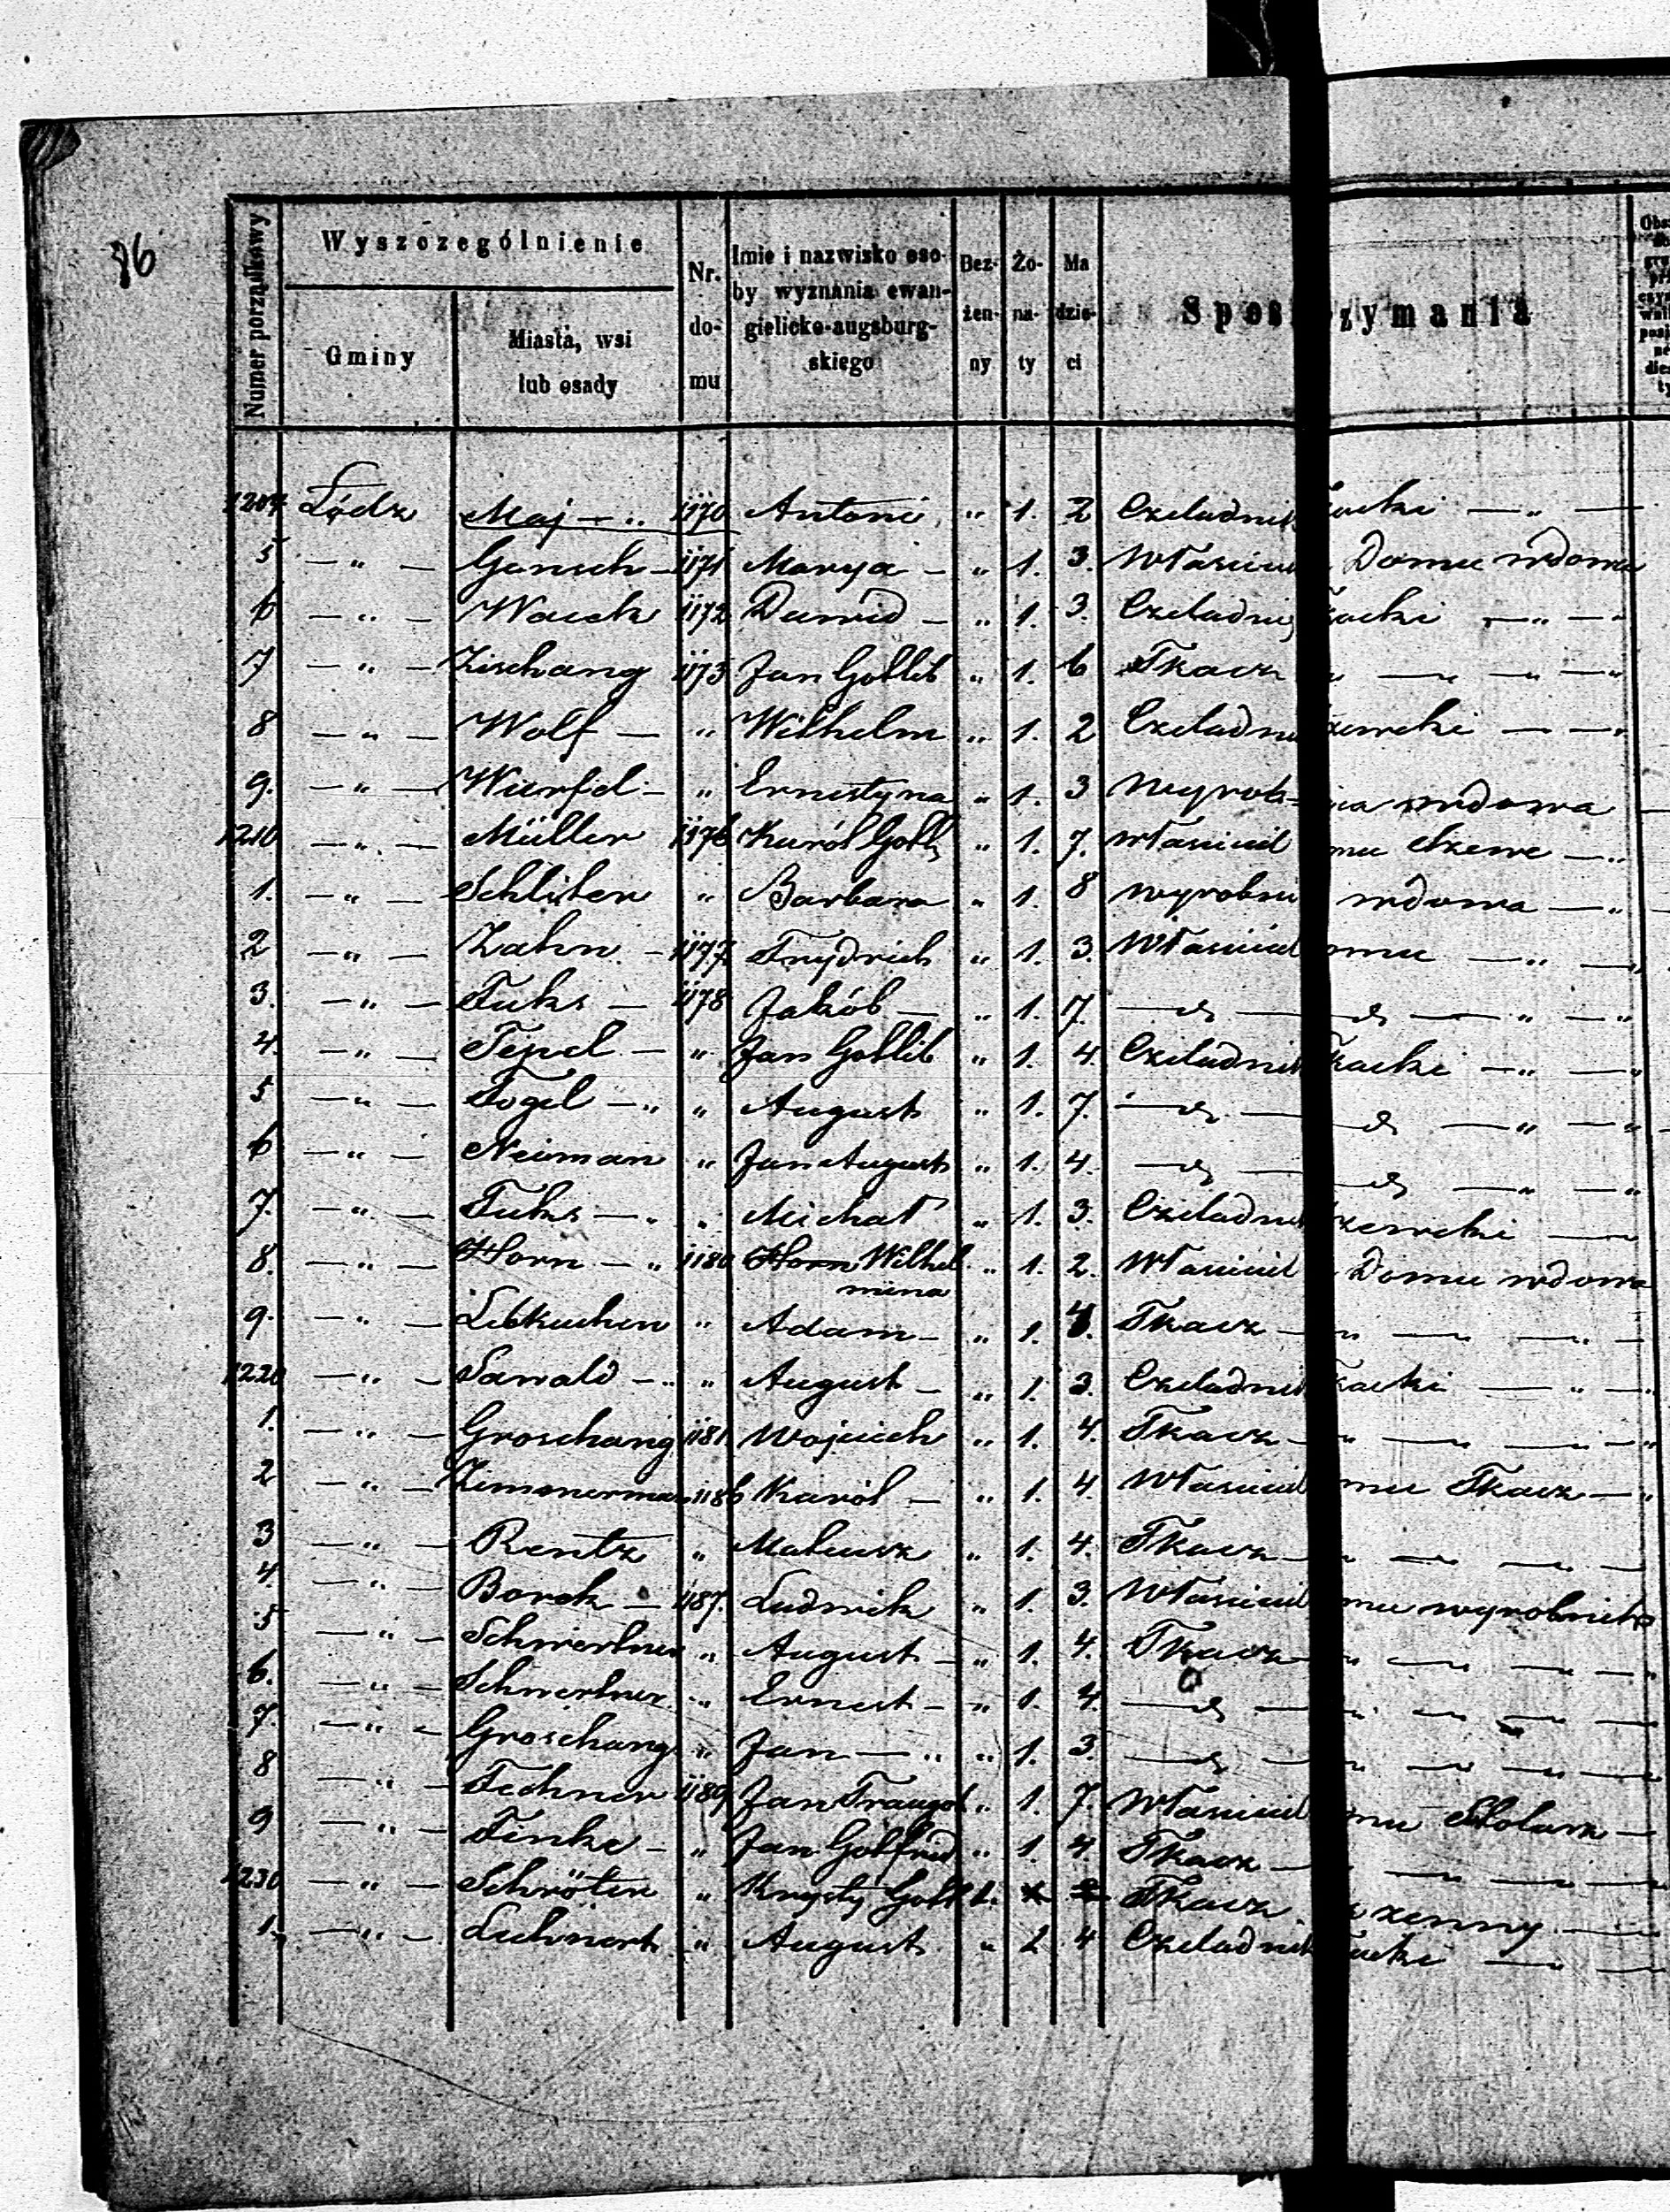 76
Numer porządkowy
Wyszczególnienie
Gminy
Miasta, wsi
lub osady
Nr.
do-
mu
Imie i nazwisko oso-
by wyznania ewan-
gielicko-augsburg-
skiego
Bez-
żen-
ny
Żo-
na-
ty
Ma
dzie-
ci
Spos zymania
1204 Łódz Maj — " 1170 Antoni " 1. 2 Czeladnik Tkacki — " —
5 — " — Gansch — 1171 Marya — " 1. 3. Właścicel Domu wdowa
6 — " — Wacek 1172 Dawid — " 1. 3. Czeladnik Tkacki — " — "
7 — " — Zischang 1173 Jan Gottlib " 1. 6 Tkacz " — " — " — "
8 — " — Wolf — " Wilhelm " 1. 2 Czeladnik szewcki — — "
9. — " — Wurfel — " Ernestyna " 1. 3 Wyrob- nica wdowa —
1210 — " — Müller 1176 Karól Gottl " 1. 7. Właścicel mu szewc — "
1. — " — Schliter " Barbara " 1. 8 Wyrobni wdowa — " —
2 — " — Zahn. — 1177 Frydrich " 1. 3. Właścicel omu — " — "
3. — " — Fuks — 1178 Jakób — " 1. 7. — d — d — " — "
4. — " — Tepel — " Jan Gottlib " 1. 4. Czeladnik Tkacki — " — "
5 — " — Fogel — " " August " 1. 7. — d — d — " — "
6 — " — Neuman " Jan August " 1. 4. — d — d — " — "
7. — " — Fuks — " " Michał " 1. 3. Czeladnik szewcki —
8. — " — Horn — " 1180 Horn Wilhel- " 1. 2. Właścicel Domu wdowa
mina
9. — " — Lebkuchen " Adam — " 1. 4. Tkacz — " — " — " —
1220 — " — Sawald — " " August — " 1. 3. Czeladnik Tkacki — " — "
1. — " — Groschang 1181 Wojciech " 1. 4. Tkacz — " — " — " — "
2 — " — Zimmerman 1186 Karól — " 1. 4. Właścicel mu Tkacz — "
3 — " — Rentz " Mateusz " 1. 4. Tkacz — " — " — " —
4. — " — Borck — 1187. Ludwik " 1. 3. Właścicel mu wyrobnik
5 — " — Schwertner " August — " 1. 4. Tkacz — " — " — " — "
6. — " — Schwertner " Ernest — " 1. 4. — d — " — " — " —
7. — " — Groschang " Jan — " " 1. 3. — d — " — " — " —
8 — " — Techner 1189 Jan Traugot " 1. 7. Właścicel mu Stolarz —
9 — " — Finke — " Jan Gotfrid " 1. 4 Tkacz — " — " — "
1230 — " — Schröter " Krysty Gottl 1. Tkacz żenny —
1. — " — Lehnert " August " 2 4 Czeladnik Tkacki — " —